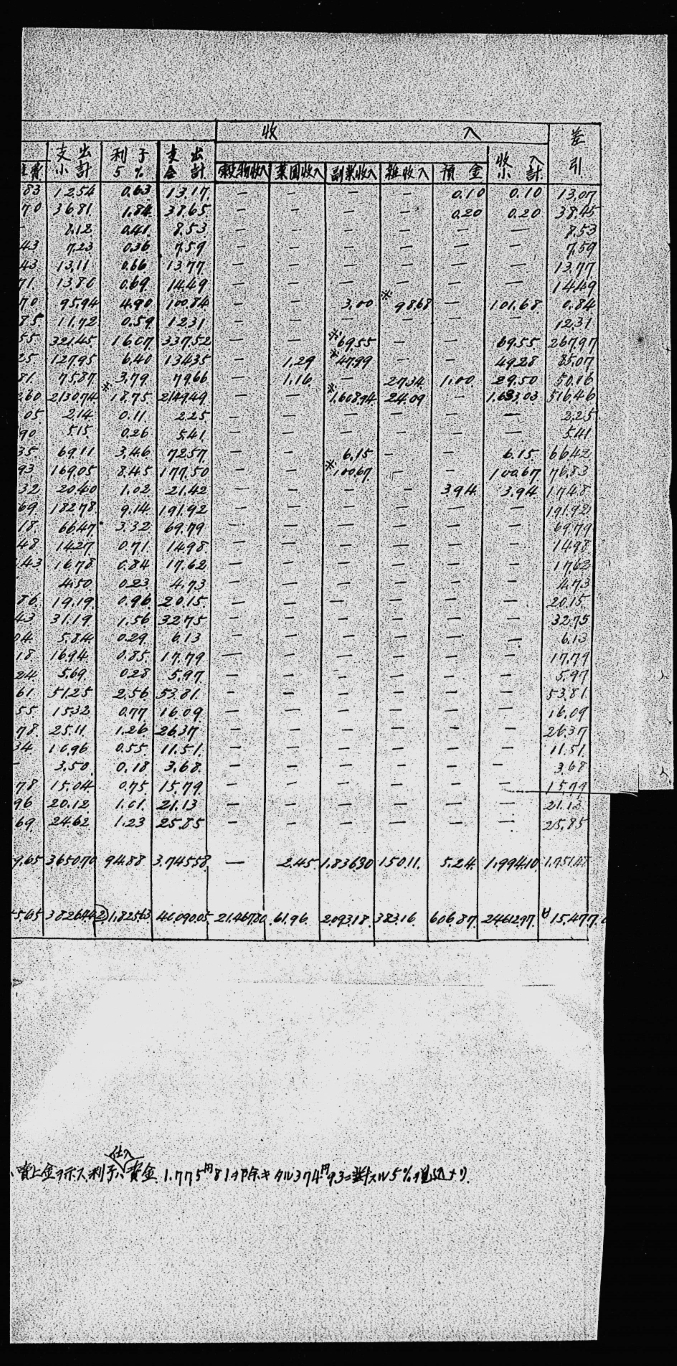 收 入 差引
費 支出小計 利子5% 支出合計 穀物收入 菜園收入 副業收入 雜收入 預金 收入小計
83 12.54 0.63 13.17 — — — — 0.10 0.10 13.07
70 36.81 1.84 38.65 — — — — 0.20 0.20 38.45
— 8.12 0.41 8.53 — — — — — — 8.53
43 7.23 0.36 7.59 — — — — — — 7.59
43 13.11 0.66 13.77 — — — — — — 13.77
71 13.80 0.69 14.49 — — — — — — 14.49
70 95.94 4.90 100.84 — — 3.00 ※98.68 — 101.68 0.84
85 11.72 0.59 12.31 — — — — — — 12.31
55 321.45 16.07 337.52 — — ※69.55 — — 69.55 267.97
25 127.95 6.40 134.35 — 1.29 ※47.99 — — 49.28 85.07
81 75.87 3.79 79.66 — 1.16 — 27.34 1.00 29.50 50.16
260 2130.74 ※18.75 2149.49 — — ※1,608.94 24.09 — 1,633.03 516.46
05 2.14 0.11 2.25 — — — — — — 2.25
90 5.15 0.26 5.41 — — — — — — 5.41
35 69.11 3.46 72.57 — — 6.15 — — 6.15 66.42
93 169.05 8.45 177.50 — — ※100.67 — — 100.67 76.83
32 20.40 1.02 21.42 — — — — 3.94 3.94 17.48
69 182.78 9.14 191.92 — — — — — — 191.92
18 66.47 3.32 69.79 — — — — — — 69.79
48 14.27 0.71 14.98 — — — — — — 14.98
43 16.78 0.84 17.62 — — — — — — 17.62
4.50 0.23 4.73 — — — — — — 4.73
86 19.19 0.96 20.15 — — — — — — 20.15
43 31.19 1.56 32.75 — — — — — — 32.75
04 5.84 0.29 6.13 — — — — — — 6.13
18 16.94 0.85 17.79 — — — — — — 17.79
24 5.69 0.28 5.97 — — — — — — 5.97
61 51.25 2.56 53.81 — — — — — — 53.81
55 15.32 0.77 16.09 — — — — — — 16.09
78 25.11 1.26 26.37 — — — — — — 26.37
34 10.96 0.55 11.51 — — — — — — 11.51
— 3.50 0.18 3.68 — — — — — — 3.68
78 15.04 0.75 15.79 — — — — — — 15.79
96 20.12 1.01 21.13 — — — — — — 21.13
69 24.62 1.23 25.85 — — — — — — 25.85
9.65 3650.70 94.88 3.745.58 — 2.45 1.836.30 150.11 5.24 1.994.10 1.751.48
565 38264.42 ②1.825.63 40.090.05 21.467.80 61.96 2.093.18 383.16 606.87 24.612.97 15.477.0
仕入
資金 1.775円81 374円93 = 對スル5%